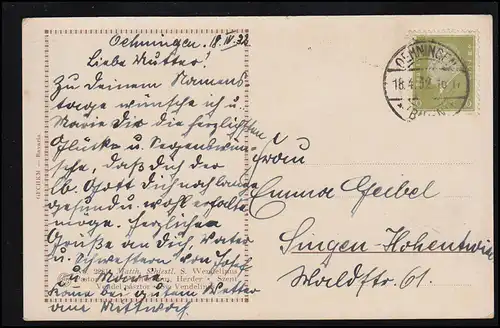 Oehningen. 18.IV.32
Liebe Mutter!
Zu Deinem Namens-
tage wünsche ich u.
Marie Dir die herzlichsten
Glück- u. Segenswün-
sche, daß Dich der
lb. Gott Dich noch lange
gesund u. wohl erhalten
möge. Herzlichen
Grüße an Dich, Vater
u. Schwestern von Josef
u. Marie
Komme bei gutem Wetter
am Mittwoch
Matth. S. Wendelinus
Herder
Vendel pásztor Vendelin
OEHNINGEN
18.4.32.16-17
Frau
Emma Geibel
Singen-Hohentwiel
Waldstr. 61.